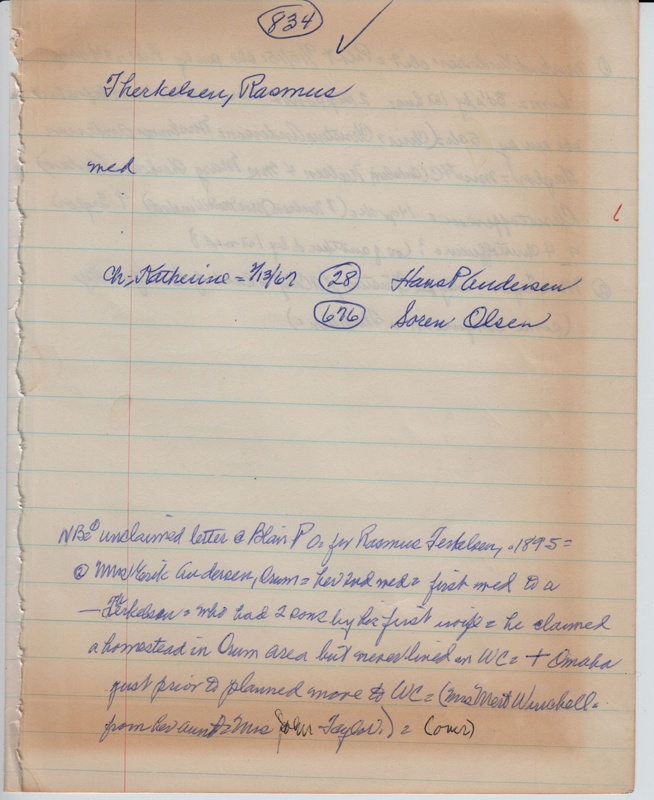 834 ✓
Therkelsen, Rasmus
med
Ch = Katherine = 2/13/67 28 Hans P Andersen
676 Soren Olsen
NB = ① unclaimed letter @ Blair P O. for Rasmus Terkelsen, - 1895 =
② Mrs Andersen, Orum = her 2nd med = first med to a
— Therkelsen = who had 2 sons by his first wife = he claimed
a homestead in Orum area but never lived in WC = + Omaha
just prior to planned move to WC = (Mrs Mert Winchell -
from her aunt = Mrs John Taylor.) = (over)